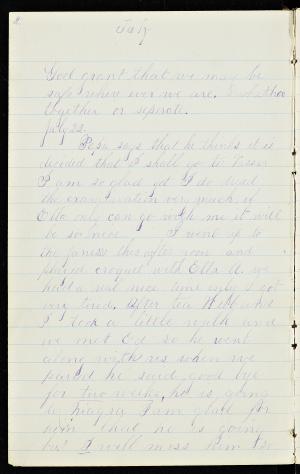 July
God grant that we may be
safe where ever we are, whether
together or seperate.
July 22.
Papa says that he thinks it is
decided that I shall go to Vassar
I am so glad yet I do dread
the examination very much, if
Ella only can go with me it will
be so nice. I went up to
the this after noon and
played croquet with Ella A. we
had a nice time only I got
very tired. After tea and
I took a little walk and
we met Ed so he went
along with us when we
parted he said good bye
for two weeks, he is going
to I am glad for
him that he is going
but I will miss him so